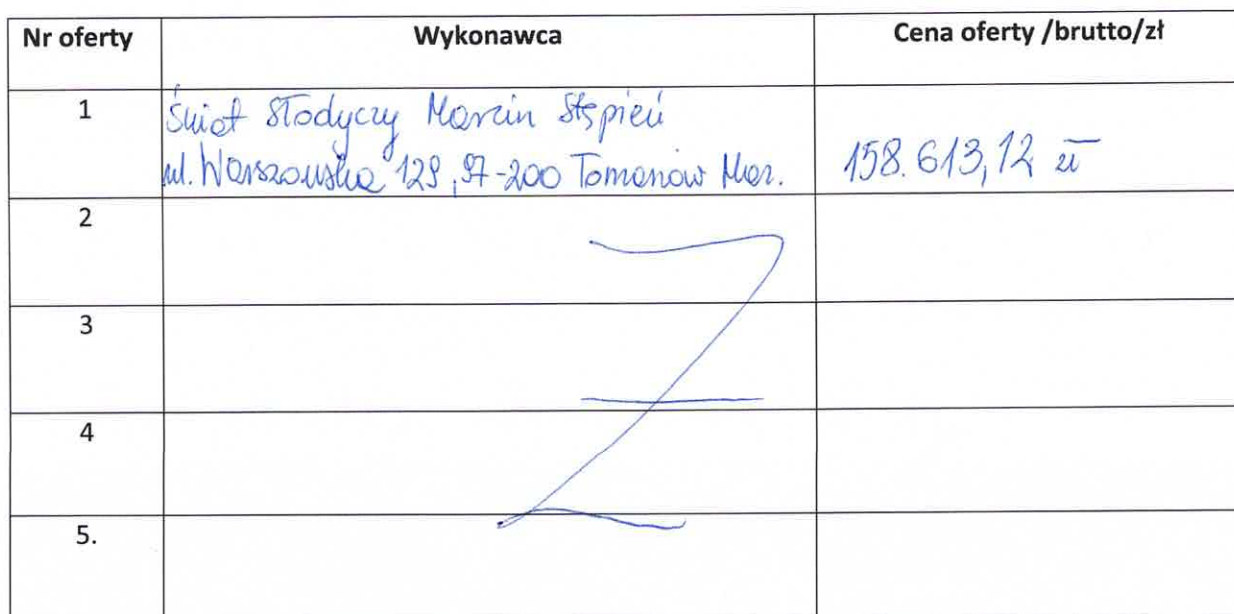 Nr oferty Wykonawca Cena oferty /brutto/zł
1 Świat Słodyczy Marcin Stępień
ul. Warszawska 129, 97-200 Tomaszów Maz. 158.613,12 zł
2
3
4
5.